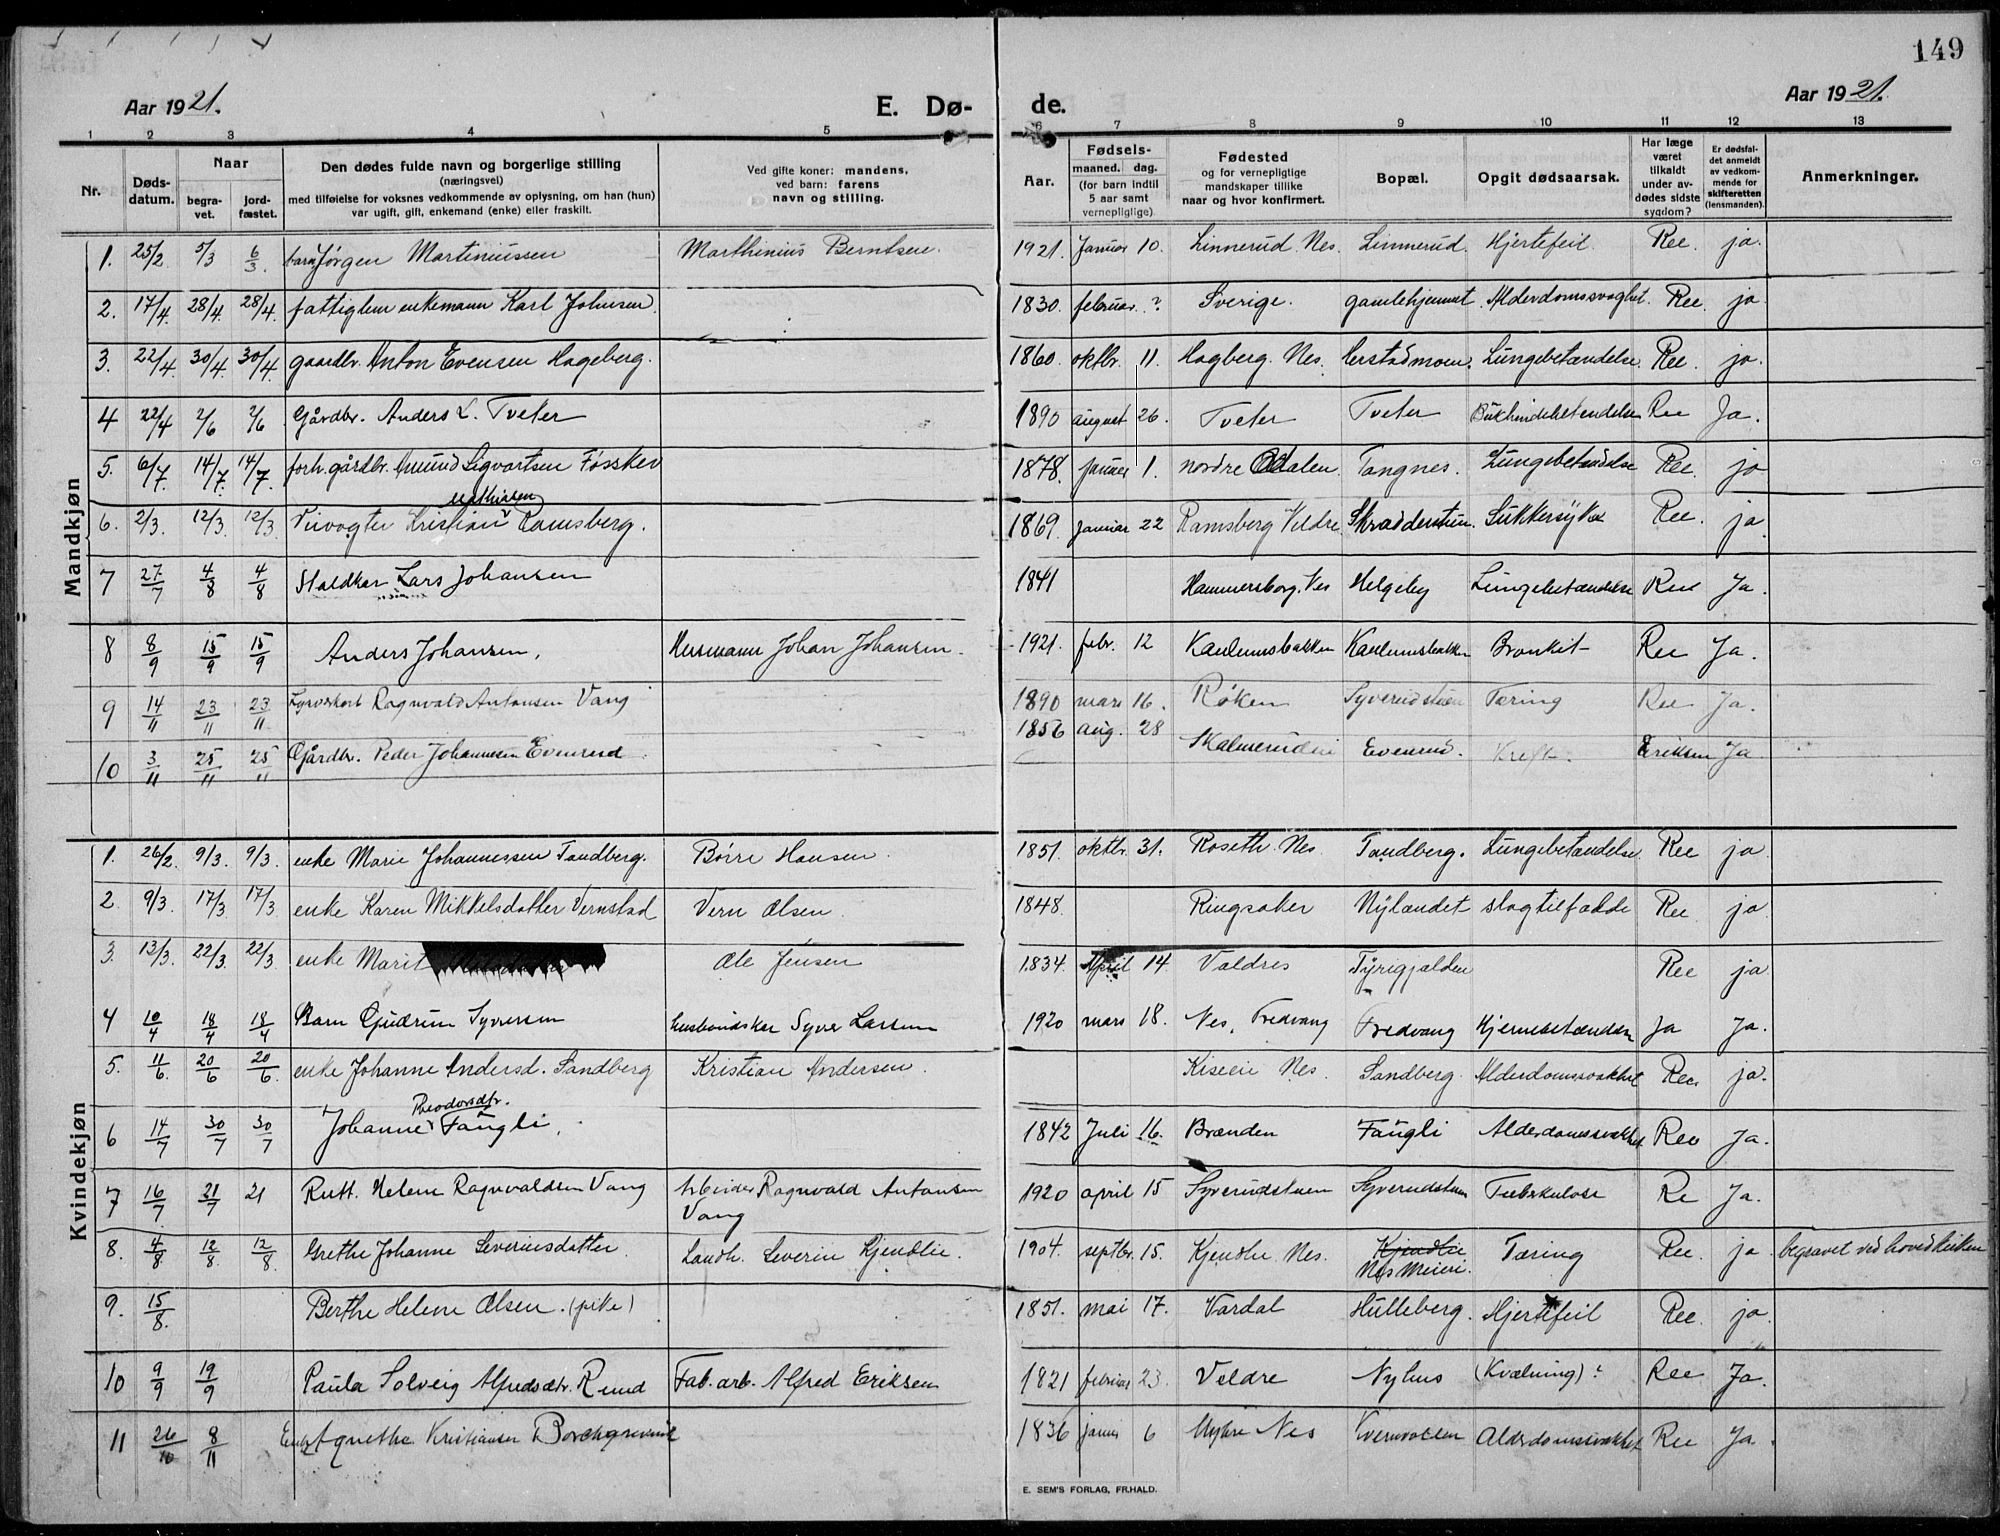 149
Aar 1921. E. Dø- de. Aar 1921.
1 2 3 4 5 6 7 8 9 10 11 12 13
Nr. Døds-datum. Naar begra-vet. jord-fæstet. Den dødes fulde navn og borgerlige stilling (næringsvei) med tilføielse for voksnes vedkommende av oplysning, om han (hun) var ugift, gift, enkemand (enke) eller fraskilt. Ved gifte koner: mandens, ved barn: farens navn og stilling. Aar. Fødsels- maaned. dag. (for barn indtil 5 aar samt vernepligtige). Fødested og for vernepligtige mandskaper tillike naar og hvor konfirmert. Bopæl. Opgit dødsaarsak. Har læge været tilkaldt under av-dødes sidste sygdom? Er dødsfal-det anmeldt av vedkom-mende for skifteretten (lensmanden). Anmerkninger.
Mandkjøn
1. 25/2 5/3 6/3. barn Jørgen Martiniussen Marthinius Berntsen. 1921. Januar 10. Linnerud. Nes. Linnerud. Hjertefeil. Ree. ja.
2. 17/4. 28/4. 28/4. fattiglem enkemann Karl Johnsen. 1830. februar. ? Sverige. gamlehjemmet. Alderdomssvaghet. Ree. ja.
3. 22/4. 30/4. 30/4. gaardbr. Anton Evensen Hageberg. 1860. oktbr. 11. Hagberg. Nes. Herstadmoen. Lungebetændelse. Ree. ja.
4 22/4 2/6 2/6 Gårdbr. Anders L. Tveter 1890 august 26. Tveter Tveter Bukhindebetendelse Ree Ja.
5. 6/7. 14/7. 14/7. forh. gårdbr. Amund Sigvartsen Fossker 1878. januar 1. nordre Odalen. Tangnes. Lungebetændelse Ree. ja
6. 2/3. 12/3. 12/3 Kristian Mathisen Ramsberg. 1869. januar 22 Ramsberg Veldre Skrædderstuen. Sukkersyke Ree. ja.
7 27/7 4/8 4/8 Staldkar Lars Johansen 1841 Hammersborg. Nes Helgeby Lungebetændelse Ree Ja.
8 8/9 15/9 15/9 Anders Johansen, Husmann Johan Johansen. 1921. febr. 12 Kaulumsbakken Kaulumsbakken Bronkit Ree Ja.
9 14/11 23/11 23/11 Ragnvald Antonsen Vang 1890 mars 16. Røken Syverudstuen Tæring Ree Ja.
10 3/11 25/11 25/11 Gårdbr. Peder Johannesen Evenrud 1856 aug. 28 Evenrud. Kreft. Eriksen Ja
Kvindekjøn
1. 26/2. 9/3. 9/3. enke Marie Johannessen Tandberg. Børre Hansen. 1851. oktbr. 31. Roseth. Nes. Tandberg. Lungebetændelse. Ree ja.
2. 9/3. 17/3. 17/3. enke Karen Mikkelsdatter Vernstad Vern Olsen. 1848. Ringsaker Nylandet slagtilfælde Ree. ja.
3. 13/3. 22/3. 22/3. enke Marit Ole Jensen 1834. April 14. Valdres Tyrigjalden Ree ja.
4 10/4 18/4 18/4 Barn Gudrun Syversen husbondskar Syver Larsen 1920 mars 18. Nes, Fredvang Fredvang Ja Ja.
5. 11/6. 20/6 20/6. enke Johanne Andersd. Sandberg Kristian Andersen. Kiseeie Nes. Sandberg. Alderdomssvakhet Ree. ja.
6 14/7 30/7 30/7 Johanne Theodorsdtr. Fangli. 1842 Juli 16. Brænden Fangli Alderdomssvakhet Ree Ja.
7 16/7 21/7 21 Rutt. Helene Ragnvaldsen Vang Arbeider Ragnvald Antonsen Vang 1920 april 15 Syverudstuen Syverudstuen Tuberkulose Re Ja.
8. 4/8. 12/8 12/8. Grethe Johanne Severinsdatter. Landh. Severin Kjendlie. 1904. septbr. 15. Kjendlie Nes. Kjendlie Nes Meieri. Tæring Ree. ja. begravet ved hovedkirken
9. 15/8. Berthe Helene Olsen. (pike) 1851. mai 17. Vardal Hulleberg. Hjertefeil Ree. ja.
10 9/9 19/9 Paula Solveig Alfredsdtr. Rund Fab. arb. Alfred Eriksen 1821 februar 23. Veldre Nyhus (Kvælning)? Ree Ja.
11 26/10 8/11 Enke Agnethe Kristiansen Borchgrevink 1836 januar 6 Myhre Nes Kvernvollen Alderdomssvakhet Ree Ja.
E. SEM'S FORLAG, FR.HALD.